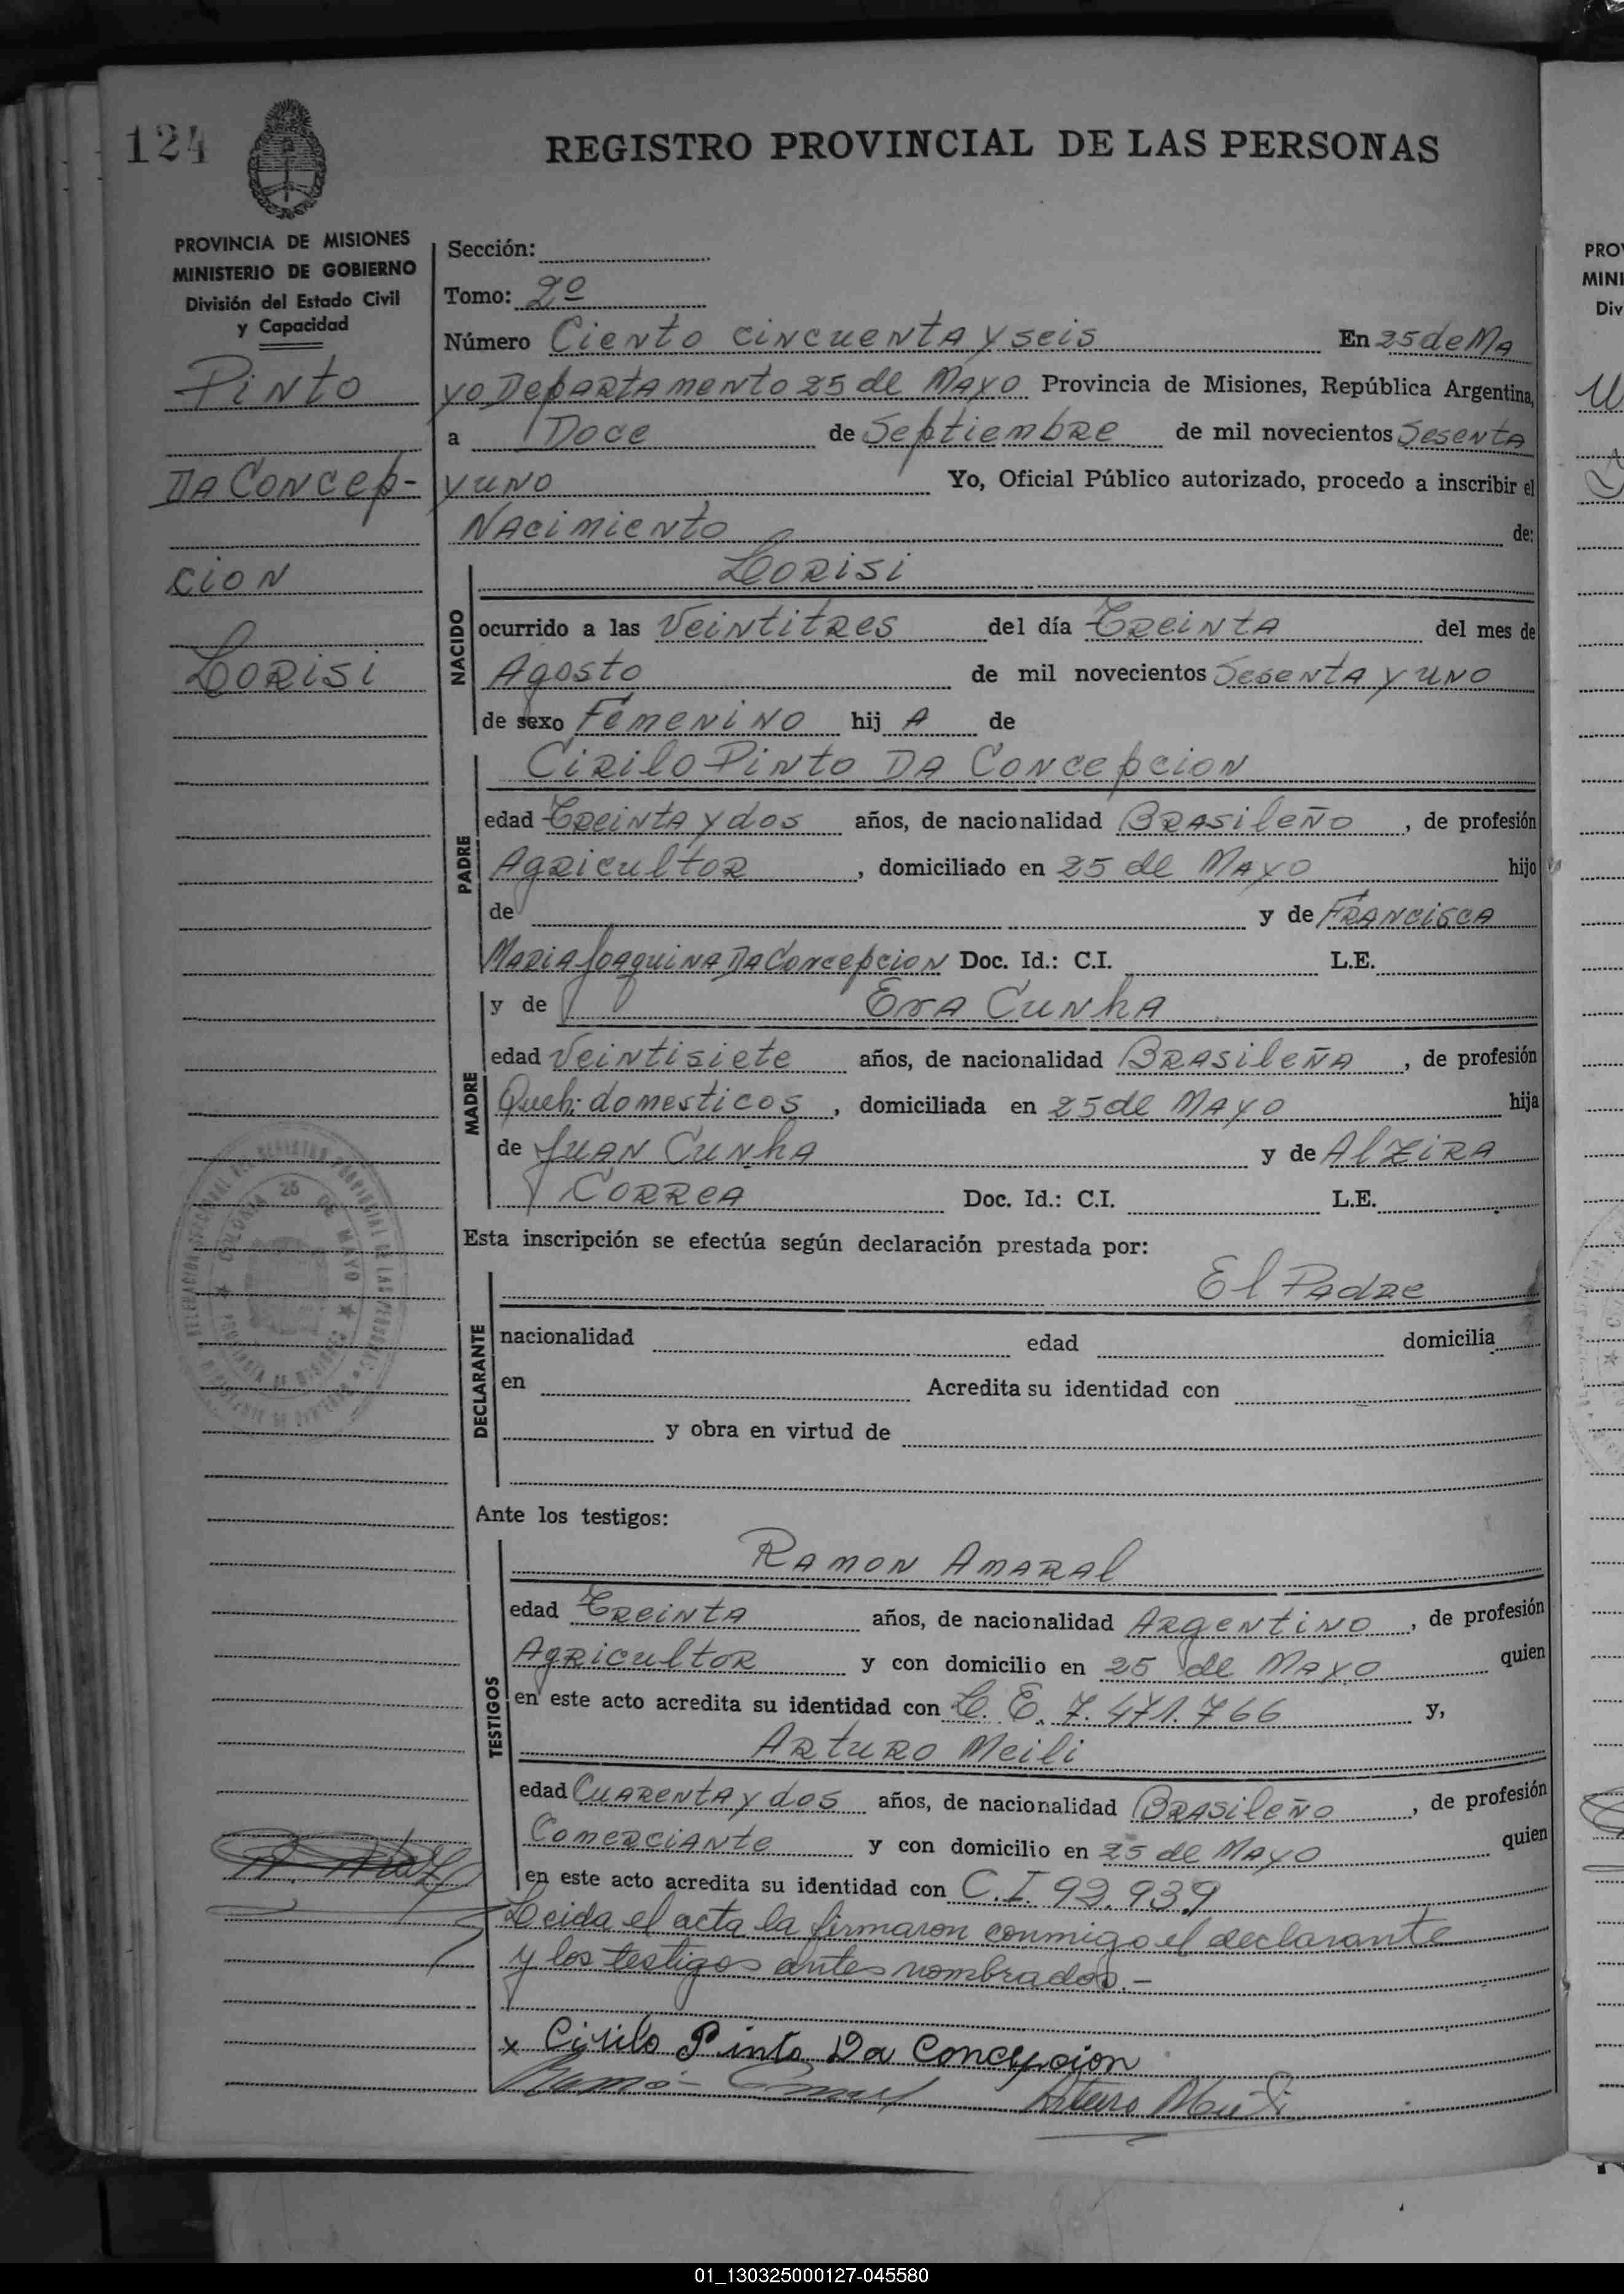 124
REGISTRO PROVINCIAL DE LAS PERSONAS
PROVINCIA DE MISIONES
MINISTERIO DE GOBIERNO
División del Estado Civil
y Capacidad
Pinto
Da Concep-
cion
Lorisi
Sección:
Tomo: 2º
Número Ciento cincuenta y seis En 25 de Ma
yo Departamento 25 de Mayo Provincia de Misiones, República Argentina,
a Doce de Septiembre de mil novecientos Sesenta
y uno Yo, Oficial Público autorizado, procedo a inscribir el
Nacimiento de:
NACIDO
Lorisi
ocurrido a las Veintitres del día Treinta del mes de
Agosto de mil novecientos Sesenta y uno
de sexo Femenino hij A de
PADRE
Cirilo Pinto Da Concepcion
edad Treinta y dos años, de nacionalidad Brasileño, de profesión
Agricultor, domiciliado en 25 de Mayo hijo
de y de Francisca
Maria Joaquina Da Concepcion Doc. Id.: C.I. L.E.
MADRE
y de Eva Cunha
edad Veintisiete años, de nacionalidad Brasileña, de profesión
Queh: domesticos, domiciliada en 25 de Mayo hija
de Juan Cunha y de Alzira
Correa Doc. Id.: C.I. L.E.
Esta inscripción se efectúa según declaración prestada por:
DECLARANTE
El Padre
nacionalidad edad domicilia
en Acredita su identidad con
y obra en virtud de
Ante los testigos:
TESTIGOS
Ramon Amaral
edad Treinta años, de nacionalidad Argentino, de profesión
Agricultor y con domicilio en 25 de Mayo quien
en este acto acredita su identidad con L. E. 7.471.766 y,
Arturo Meili
edad Cuarenta y dos años, de nacionalidad Brasileño, de profesión
Comerciante y con domicilio en 25 de Mayo quien
en este acto acredita su identidad con C.I. 93.939
Leida el acta la firmaron conmigo el declarante
y los testigos antes nombrados.-
x Cirilo Pinto Da Concepcion
Arturo Meili
COLONIA 25 DE MAYO
PROVINCIA DE MISIONES
PRO
MINI
Div
01_130325000127-045580